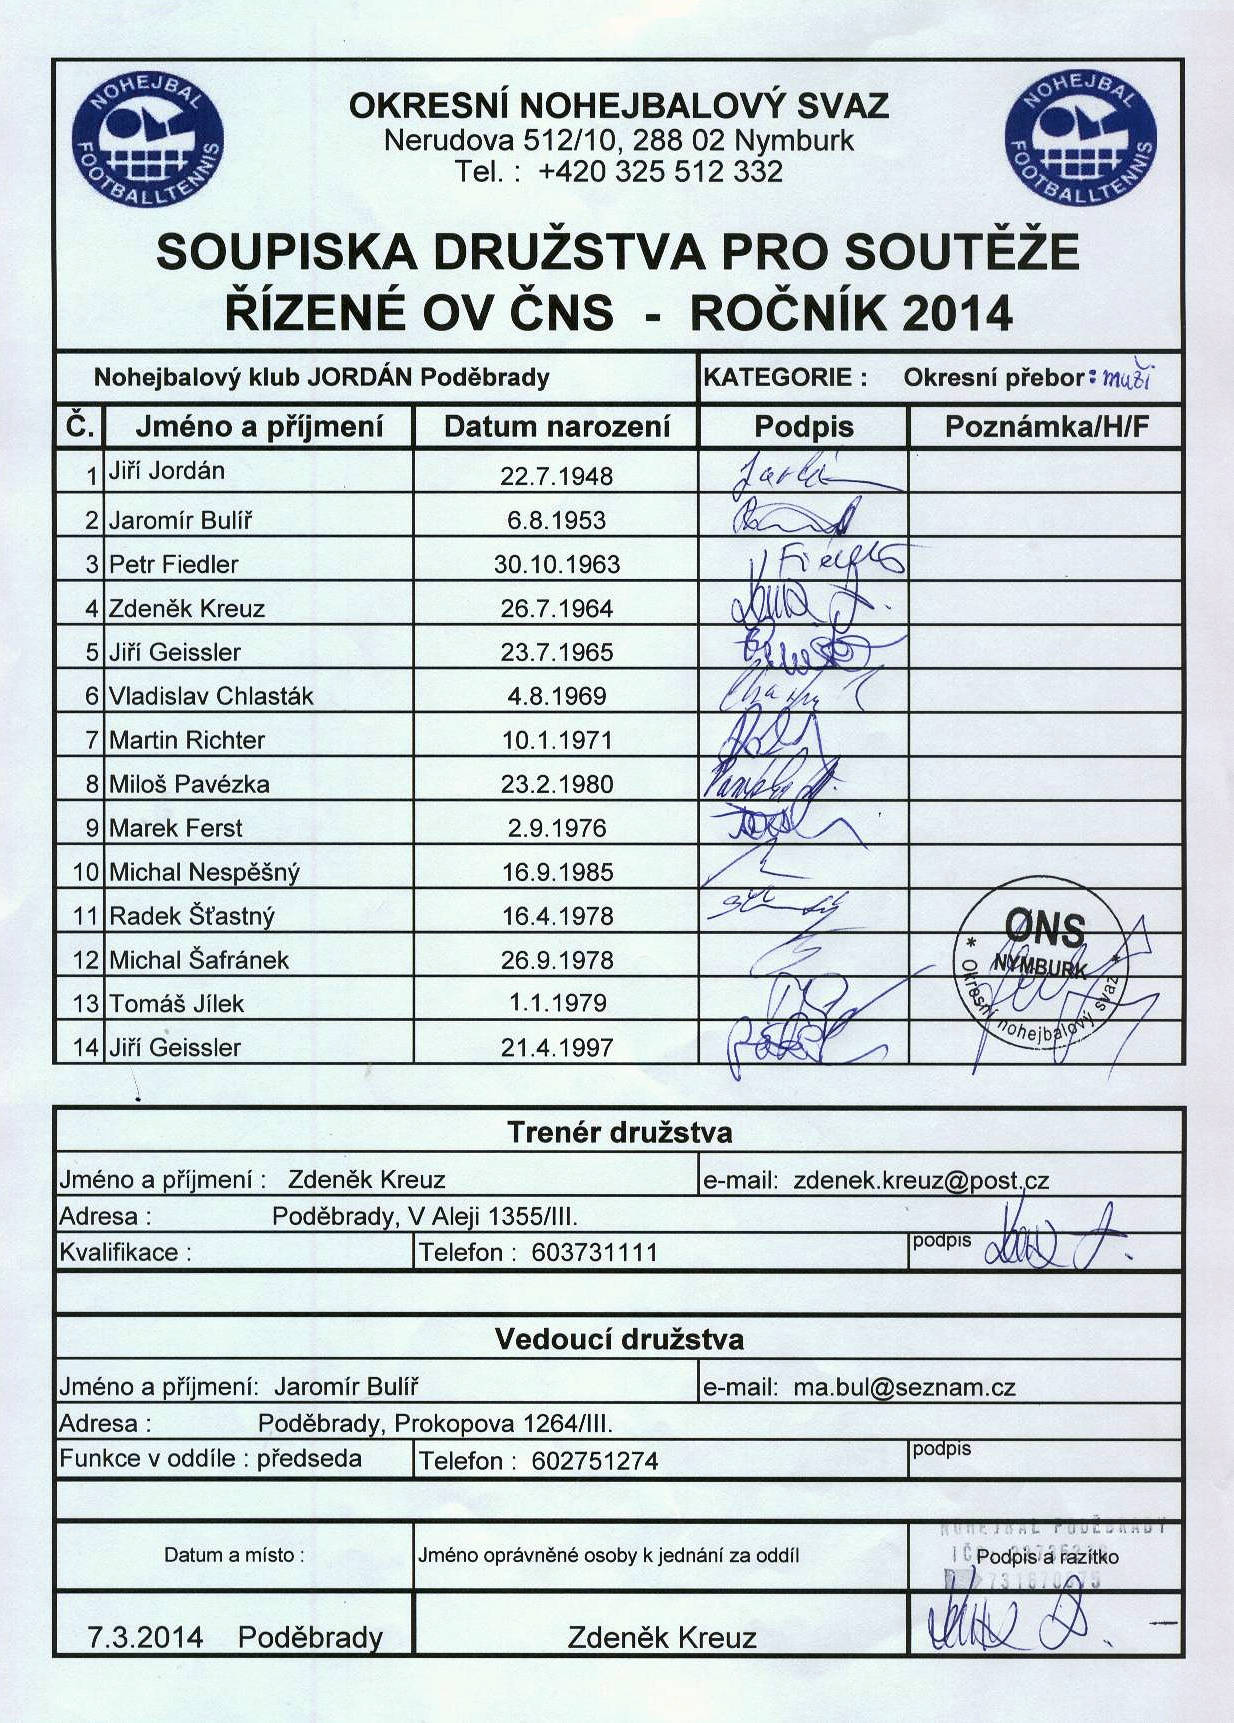 NOHEJBAL FOOTBALLTENNIS
NOHEJBAL FOOTBALLTENNIS
OKRESNÍ NOHEJBALOVÝ SVAZ
Nerudova 512/10, 288 02 Nymburk
Tel. : +420 325 512 332
SOUPISKA DRUŽSTVA PRO SOUTĚŽE
ŘÍZENÉ OV ČNS - ROČNÍK 2014
Nohejbalový klub JORDÁN Poděbrady KATEGORIE : Okresní přebor: muži
Č. Jméno a příjmení Datum narození Podpis Poznámka/H/F
1 Jiří Jordán 22.7.1948
2 Jaromír Bulíř 6.8.1953
3 Petr Fiedler 30.10.1963
4 Zdeněk Kreuz 26.7.1964
5 Jiří Geissler 23.7.1965
6 Vladislav Chlasták 4.8.1969
7 Martin Richter 10.1.1971
8 Miloš Pavézka 23.2.1980
9 Marek Ferst 2.9.1976
10 Michal Nespěšný 16.9.1985
11 Radek Šťastný 16.4.1978
12 Michal Šafránek 26.9.1978
13 Tomáš Jílek 1.1.1979
14 Jiří Geissler 21.4.1997
ONS
NYMBURK
* Okresní nohejbalový svaz *
Trenér družstva
Jméno a příjmení : Zdeněk Kreuz e-mail: zdenek.kreuz@post.cz
Adresa : Poděbrady, V Aleji 1355/III.
Kvalifikace : Telefon : 603731111 podpis
Vedoucí družstva
Jméno a příjmení: Jaromír Bulíř e-mail: ma.bul@seznam.cz
Adresa : Poděbrady, Prokopova 1264/III.
Funkce v oddíle : předseda Telefon : 602751274 podpis
NOHEJBAL PODĚBRADY
Datum a místo : Jméno oprávněné osoby k jednání za oddíl Podpis a razítko
7.3.2014 Poděbrady Zdeněk Kreuz